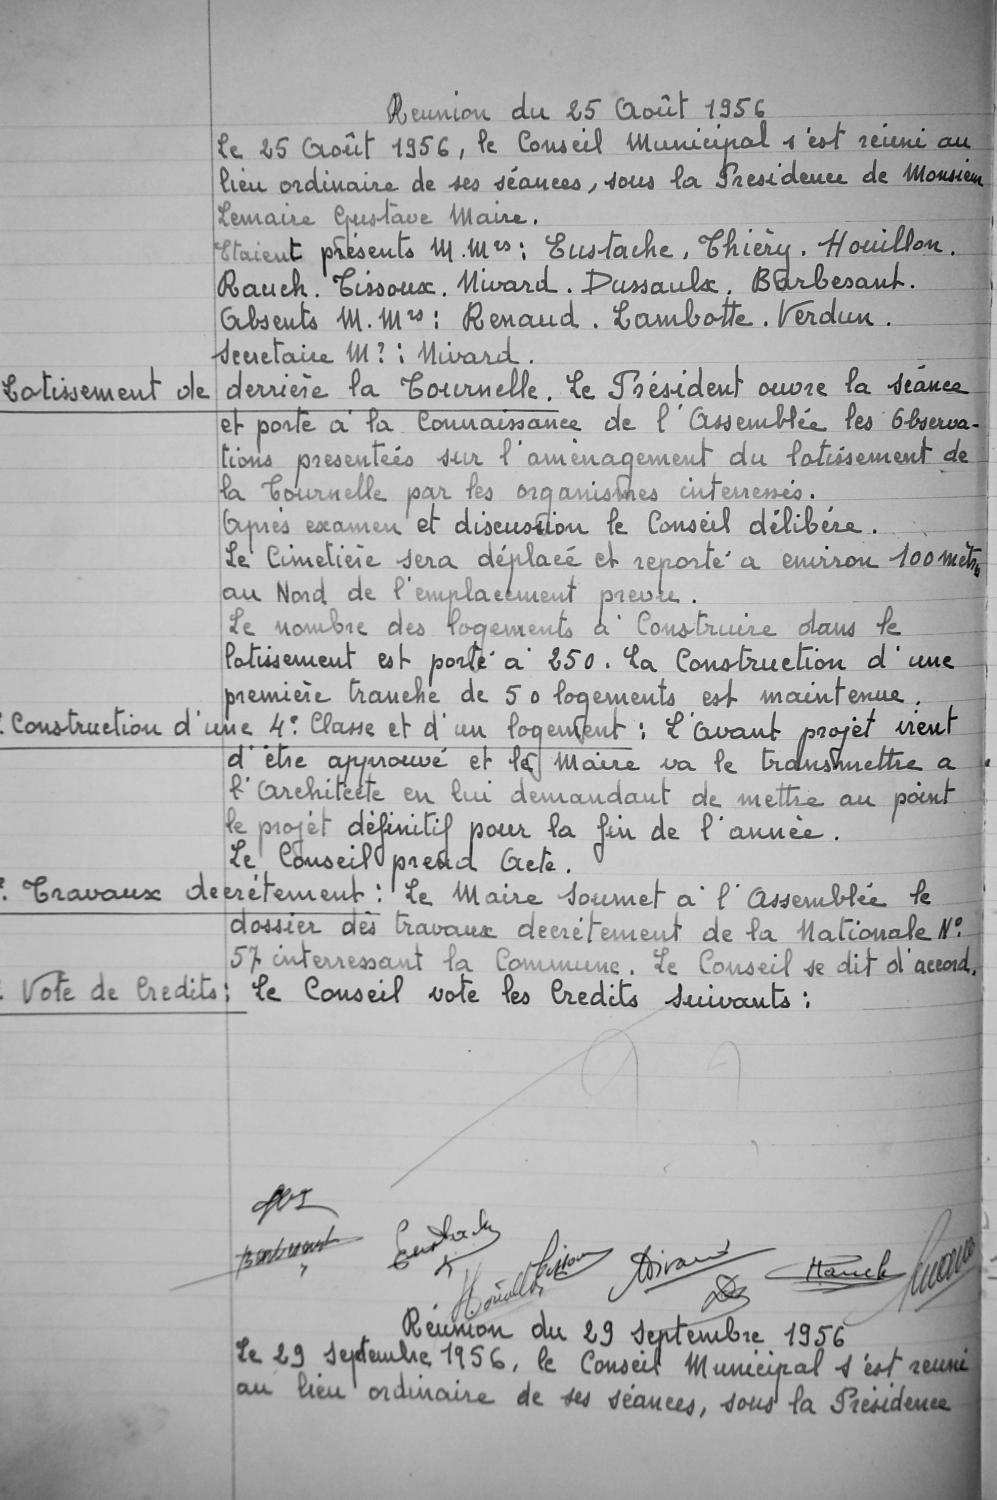 Reunion du 25 Août 1956
Le 25 Août 1956, le Conseil Municipal s'est réuni au
lieu ordinaire de ses séances, sous la Presidence de Monsieur
Lemaire Gustave Maire.
Etaient présents M.Mrs : Eustache, Thièry. Houillon.
Rauch. Tissoux. Nivard. Dussaulx. Barbesant.
Absents M.Mrs : Renaud. Lambotte. Verdun.
Secretaire Mr : Nivard.
Lotissement de derrière la Tournelle. Le Président ouvre la séance
et porte à la Connaissance de l'Assemblée les Observa-
tions presentées sur l'aménagement du lotissement de
la Tournelle par les organismes interressés.
Après examen et discussion le Conseil délibére.
Le Cimetière sera déplacé et reporté a environ 100 mètres
au Nord de l'emplacement prevu.
Le nombre des logements à Construire dans le
lotissement est porté à 250. La Construction d'une
première tranche de 50 logements est maintenue.
Construction d'une 4e Classe et d'un logement : L'avant projet vient
d'être approuvé et le Maire va le transmettre a
l'Architecte en lui demandant de mettre au point
le projet définitif pour la fin de l'année.
Le Conseil prend Acte.
Travaux decrétement : Le Maire Soumet à l'Assemblée le
dossier des travaux decrétement de la Nationale N°
57 interressant la Commune. Le Conseil se dit d'accord.
Vote de Credits : Le Conseil vote les Credits suivants :
Barbesant
Eustache
Houillon
Tissoux
Nivard
Rauch
Réunion du 29 Septembre 1956
Le 29 Septembre 1956, le Conseil Municipal s'est reuni
au lieu ordinaire de ses séances, sous la Présidence